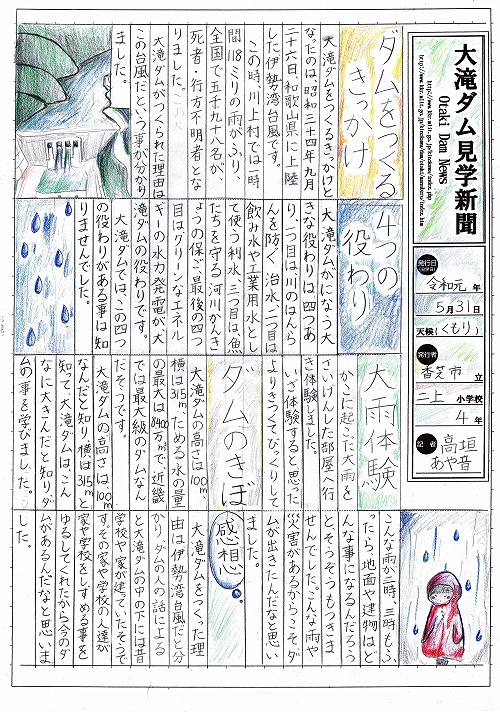 大滝ダム見学新聞
Otaki Dam News
発行日
令和元年
5月31日
天候(くもり)
発行者
香芝市立
二上小学校
4年
記者
高垣
あや音
ダムをつくる
きっかけ
大滝ダムをつくるきっかけと
なったのは、昭和三十四年九月
二十六日、和歌山県に上陸
した伊勢湾台風です。
この時、川上村では一時
間118ミリの雨がふり、
全国で五千九十八名が、
死者・行方不明者とな
りました。
大滝ダムがつくられた理由は
この台風だという事が分かり
ました。
4つの
役わり
大滝ダムがになう大
きな役わりは四つあ
り、一つ目は、川のはんら
んを防ぐ治水、二つ目は
飲み水や工業用水とし
て使う利水、三つ目は、魚
たちを守る河川かんき
ょうの保ご、最後の四つ
目はクリーンなエネル
ギーの水力発電が大
滝ダムの役わりです。
大滝ダムでは、この四つ
の役わりがある事は知
りませんでした。
大雨体験
かこに起こった大雨を
さいげんした部屋へ行
き体験しました。
いざ体験すると思った
よりきつくてびっくりして
こんな雨が二時、三時もふ
ったら、地面や建物はど
んな事になるんだろう
と、そうぞうもつきま
せんでした。こんな雨や
災害があるからこそ、ダ
ムが出きたんだなと思い
ました。
ダムのきぼ
大滝ダムの高さは100m
横は315m、ためる水の量
の最大は8400万㎥で、近畿
では最大級のダムなん
だそうです。
大滝ダムの高さは、100m
なんだと知り横は315mと
知って大滝ダムは、こん
なに大きんだと知りダ
ムの事を学びました。
感想
大滝ダムをつくった理
由は伊勢湾台風だと分
かり、ダムの人の話による
と大滝ダムの中の下には昔
学校や家が建っていたそうで
す。その家や学校の人達が
家や学校をしずめる事を
ゆるしてくれたから今のダ
ムがあるんだなと思いま
した。